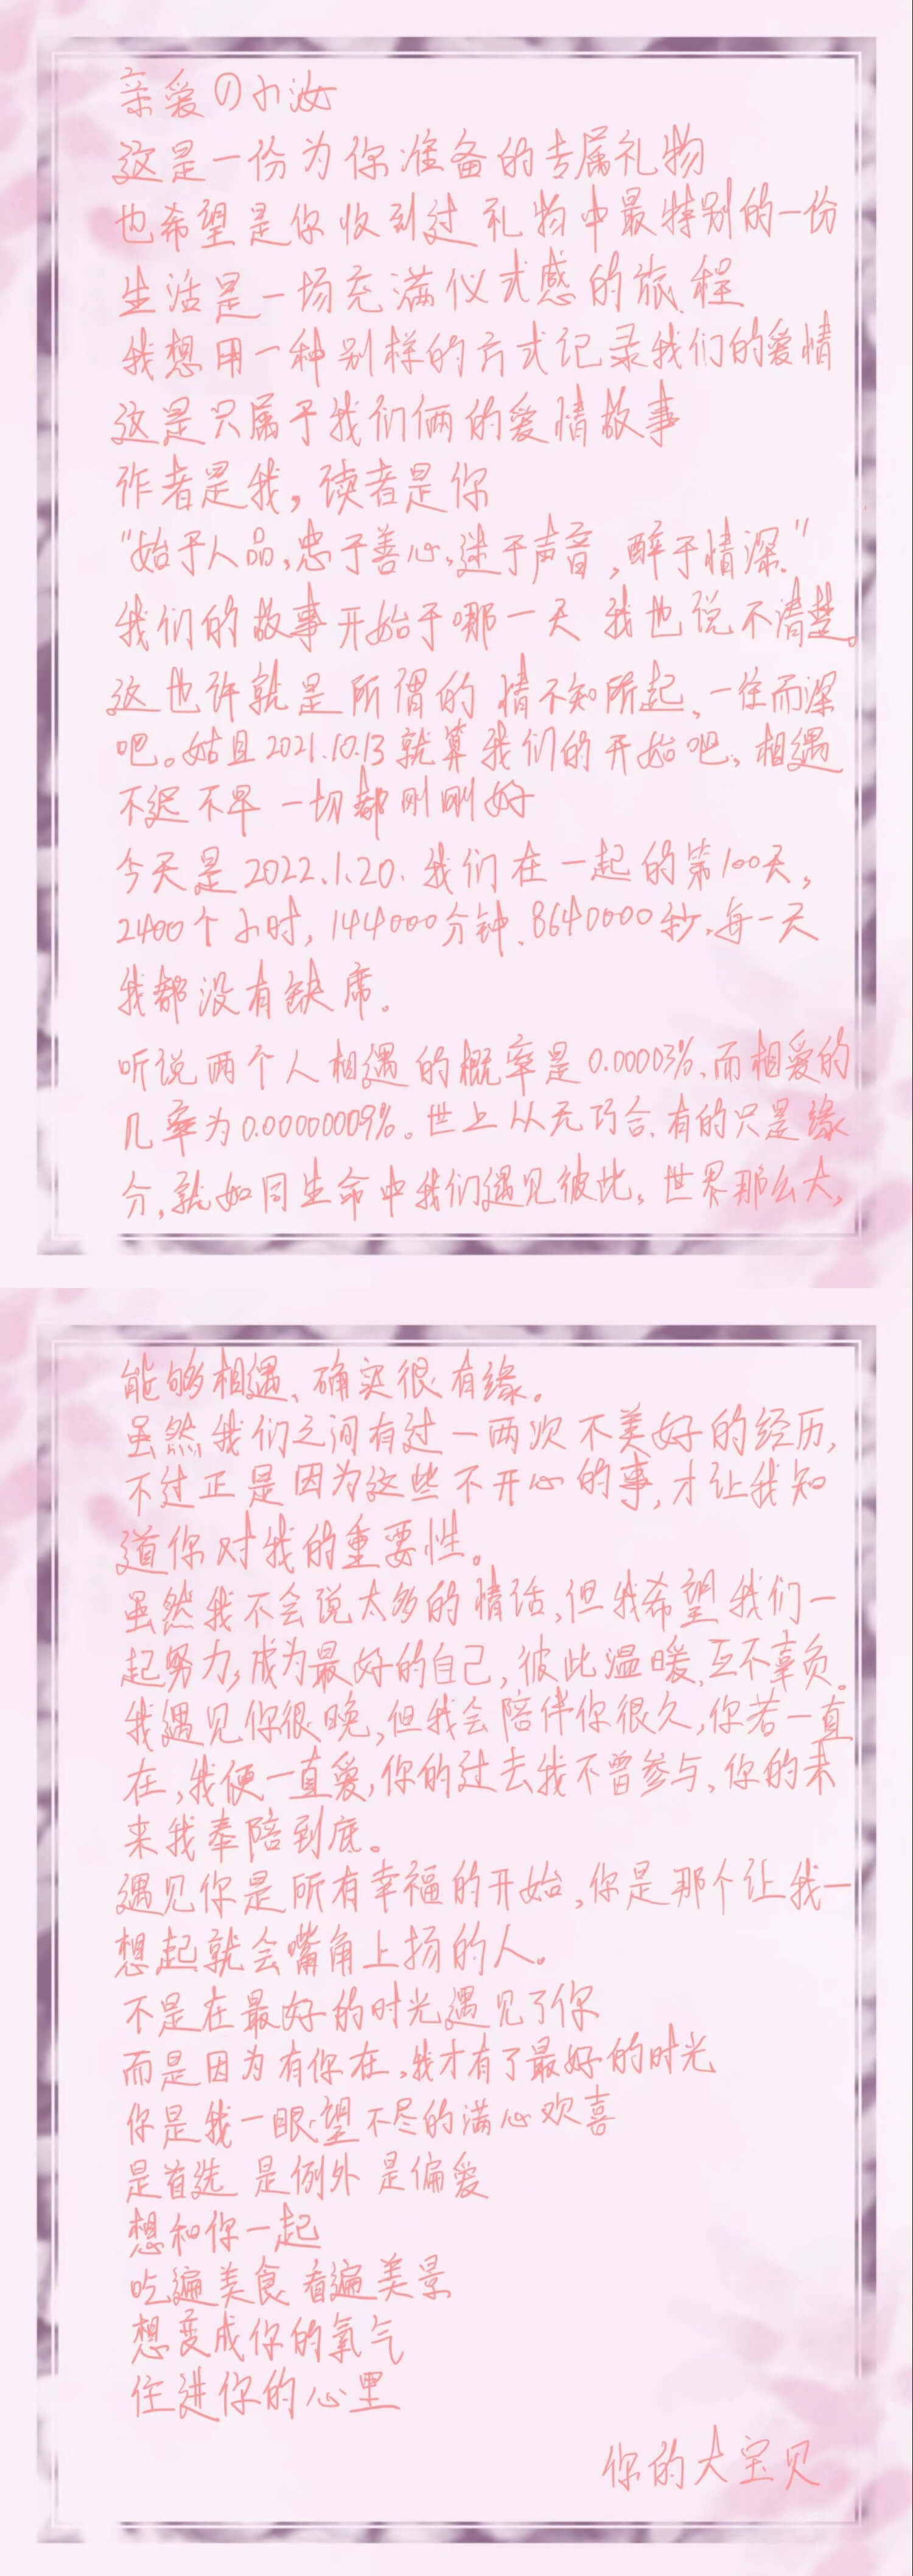 亲爱の小汝
这是一份为你准备的专属礼物
也希望是你收到过礼物中最特别的一份
生活是一场充满仪式感的旅程
我想用一种别样的方式记录我们的爱情
这是只属于我们俩的爱情故事
作者是我,读者是你
“始于人品,忠于善心,迷于声音,醉于情深.”
我们的故事开始于哪一天 我也说不清楚。
这也许就是所谓的 情不知所起、一往而深
吧。姑且2021.10.13就算我们的开始吧、相遇
不迟不早 一切都刚刚好
今天是2022.1.20.我们在一起的第100天,
2400个小时,144000分钟、8640000秒,每一天
我都没有缺席.
听说两个人相遇的概率是0.00003%、而相爱的
几率为0.00000009%。世上从无巧合.有的只是缘
分,就如同生命中我们遇见彼此,世界那么大,
能够相遇、确实很有缘。
虽然我们之间有过一两次不美好的经历,
不过正是因为这些不开心的事,才让我知
道你对我的重要性。
虽然我不会说太多的情话,但我希望我们一
起努力,成为最好的自己,彼此温暖,互不辜负。
我遇见你很晚,但我会陪伴你很久,你若一直
在,我便一直爱,你的过去我不曾参与、你的未
来我奉陪到底。
遇见你是所有幸福的开始,你是那个让我一
想起就会嘴角上扬的人。
不是在最好的时光遇见了你
而是因为有你在,我才有了最好的时光
你是我一眼望不尽的满心欢喜
是首选 是例外 是偏爱
想和你一起
吃遍美食 看遍美景
想变成你的氧气
住进你的心里
你的大宝贝